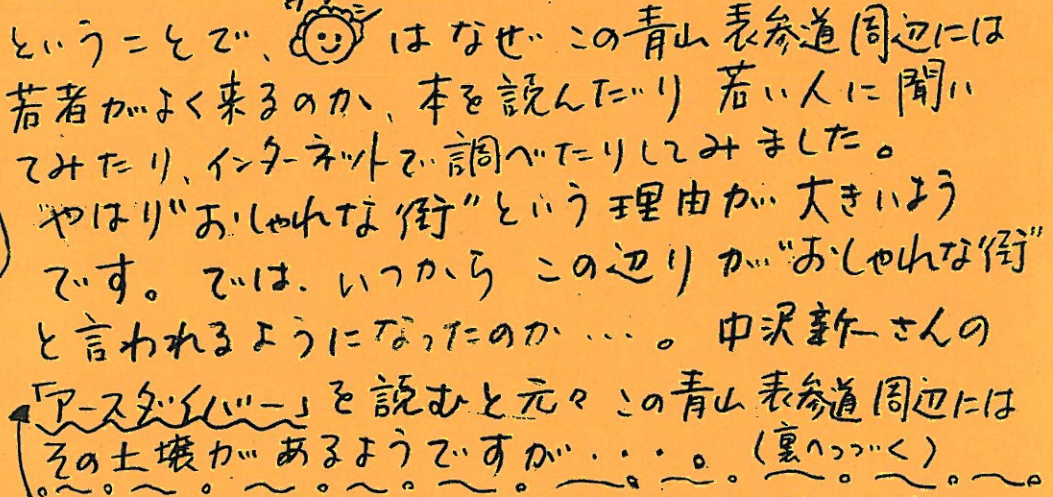 ということで、はなぜこの青山表参道周辺には
若者がよく来るのか、本を読んだり若い人に聞い
てみたり、インターネットで調べたりしてみました。
やはり"おしゃれな街"という理由が大きいよう
です。では、いつからこの辺りが"おしゃれな街"
と言われるようになったのか…。中沢新一さんの
「アースダイバー」を読むと元々この青山表参道周辺には
その土壌があるようですが・・・・。(裏へつづく)